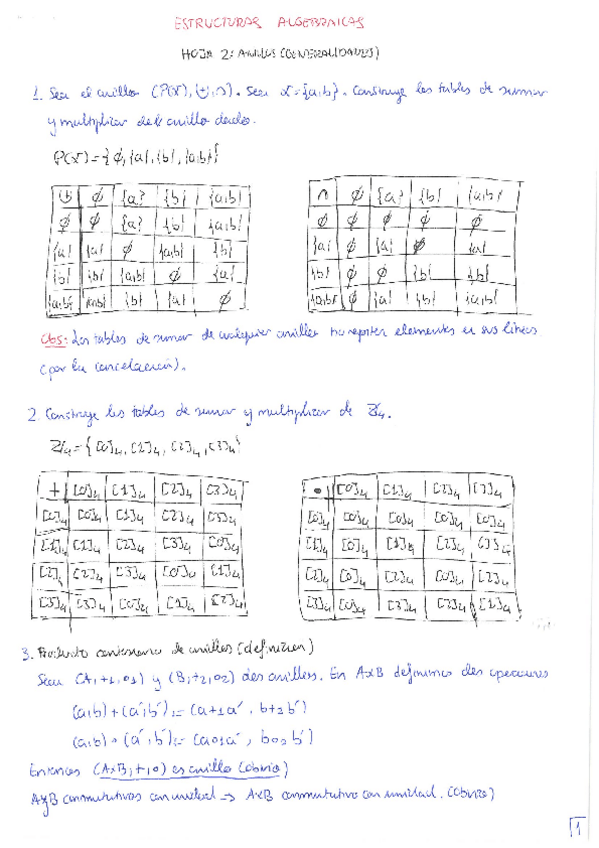 ESTRUCTURAS ALGEBRAICAS
HOJA 2: ANILLOS (GENERALIDADES)
1. Sea el anillo (P(X), ⊎, ∩). Sea X={a,b}. Construye las tablas de sumar
y multiplicar del anillo dado.
P(X)={∅,{a},{b},{a,b}}
⊎ ∅ {a} {b} {a,b}
∅ ∅ {a} {b} {a,b}
{a} {a} ∅ {a,b} {b}
{b} {b} {a,b} ∅ {a}
{a,b} {a,b} {b} {a} ∅
∩ ∅ {a} {b} {a,b}
∅ ∅ ∅ ∅ ∅
{a} ∅ {a} ∅ {a}
{b} ∅ ∅ {b} {b}
{a,b} ∅ {a} {b} {a,b}
Obs: Las tablas de sumar de cualquier anillo no repiten elementos en sus líneas
(por la cancelación).
2. Construye las tablas de sumar y multiplicar de Z₄.
Z₄={[0]₄, [1]₄, [2]₄, [3]₄}
+ [0]₄ [1]₄ [2]₄ [3]₄
[0]₄ [0]₄ [1]₄ [2]₄ [3]₄
[1]₄ [1]₄ [2]₄ [3]₄ [0]₄
[2]₄ [2]₄ [3]₄ [0]₄ [1]₄
[3]₄ [3]₄ [0]₄ [1]₄ [2]₄
• [0]₄ [1]₄ [2]₄ [3]₄
[0]₄ [0]₄ [0]₄ [0]₄ [0]₄
[1]₄ [0]₄ [1]₄ [2]₄ [3]₄
[2]₄ [0]₄ [2]₄ [0]₄ [2]₄
[3]₄ [0]₄ [3]₄ [2]₄ [1]₄
3. Producto cartesiano de anillos (definición)
Sean (A,+₁,o₁) y (B,+₂,o₂) dos anillos. En AxB definimos dos operaciones
(a,b)+(a',b'):=(a+₁a', b+₂b')
(a,b)o(a',b'):=(ao₁a', bo₂b')
Entonces (AxB,+,o) es anillo (obvio)
A y B conmutativos con unidad → AxB conmutativo con unidad. (obvio)
1